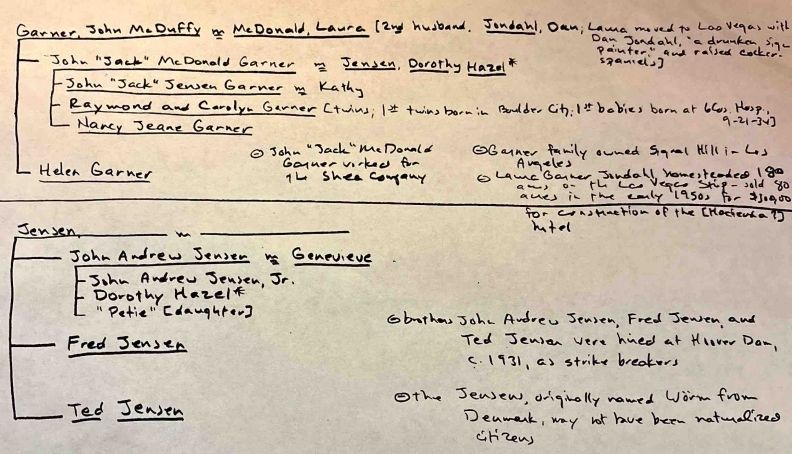 Garner, John McDuffy m McDonald, Laura [2nd husband, Jondahl, Dan; Laura moved to Las Vegas with
Dan Jondahl, "a drunken sign
painter" and raised cocker-
spaniels]
John "Jack" McDonald Garner m Jensen, Dorothy Hazel*
John "Jack" Jensen Garner m Kathy
Raymond and Carolyn Garner [twins; 1st twins born in Boulder City; 1st babies born at 6 Cos. Hosp.,
9-21-34]
Nancy Jeane Garner
John "Jack" McDonald
Garner worked for
the Shea Company
Garner family owned Signal Hill in Los
Angeles
Laura Garner Jondahl homesteaded 180
acres on the Las Vegas Strip - sold 80
acres in the early 1950s for
for construction of the [Hacienda?]
hotel
Helen Garner
Jensen, m
John Andrew Jensen m Genevieve
John Andrew Jensen, Jr.
Dorothy Hazel*
"Petie" [daughter]
Fred Jensen
Ted Jensen
brothers John Andrew Jensen, Fred Jensen, and
Ted Jensen were hired at Hoover Dam,
c. 1931, as strike breakers
the Jensens, originally named Worm from
Denmark, may not have been naturalized
citizens